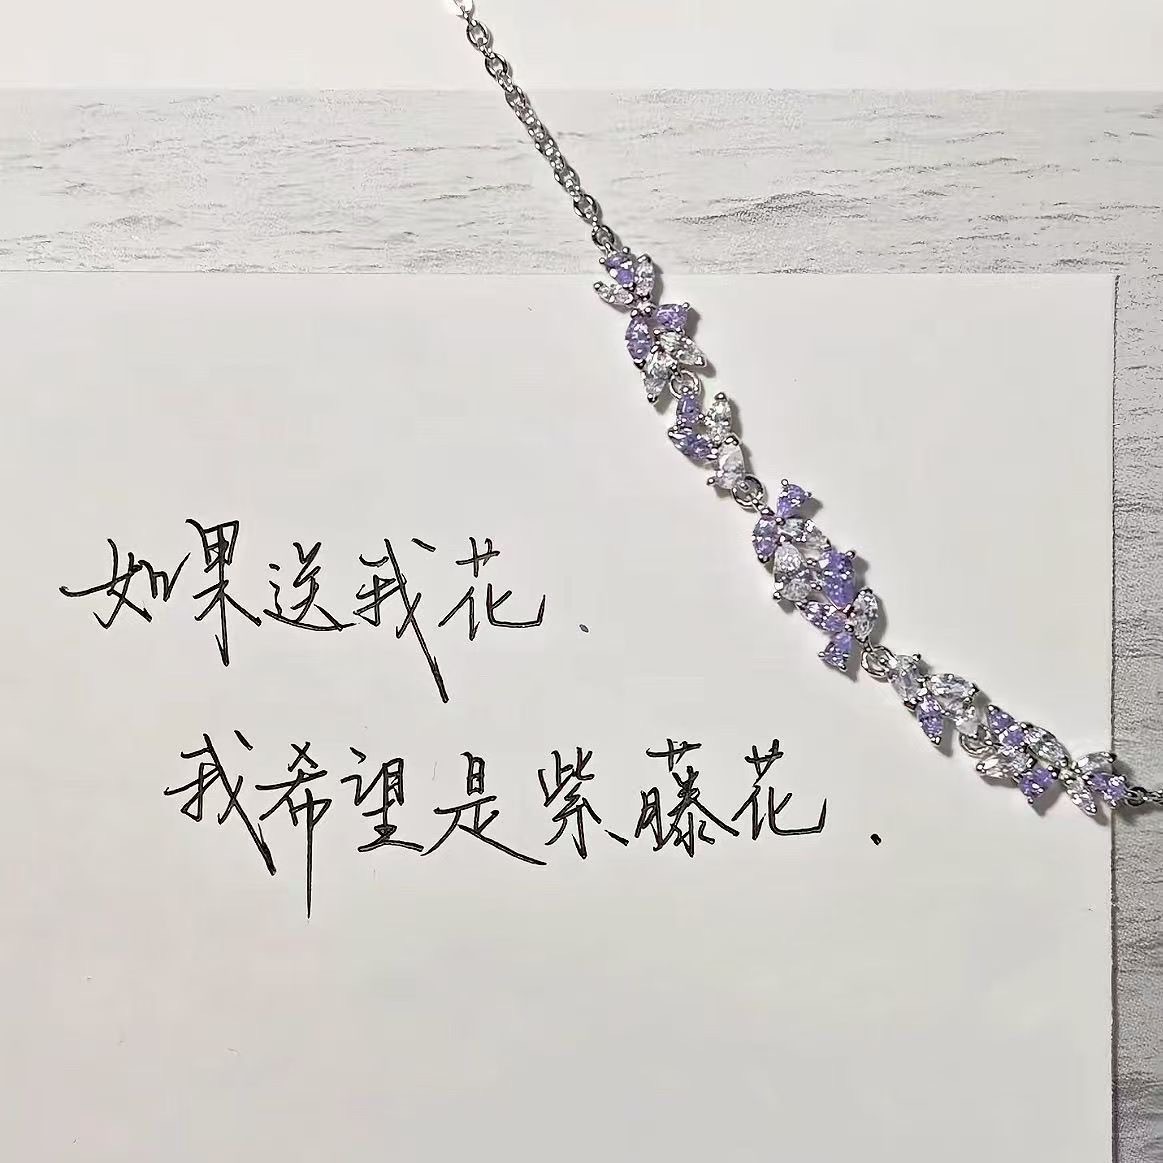 如果送我花.
我希望是紫藤花.